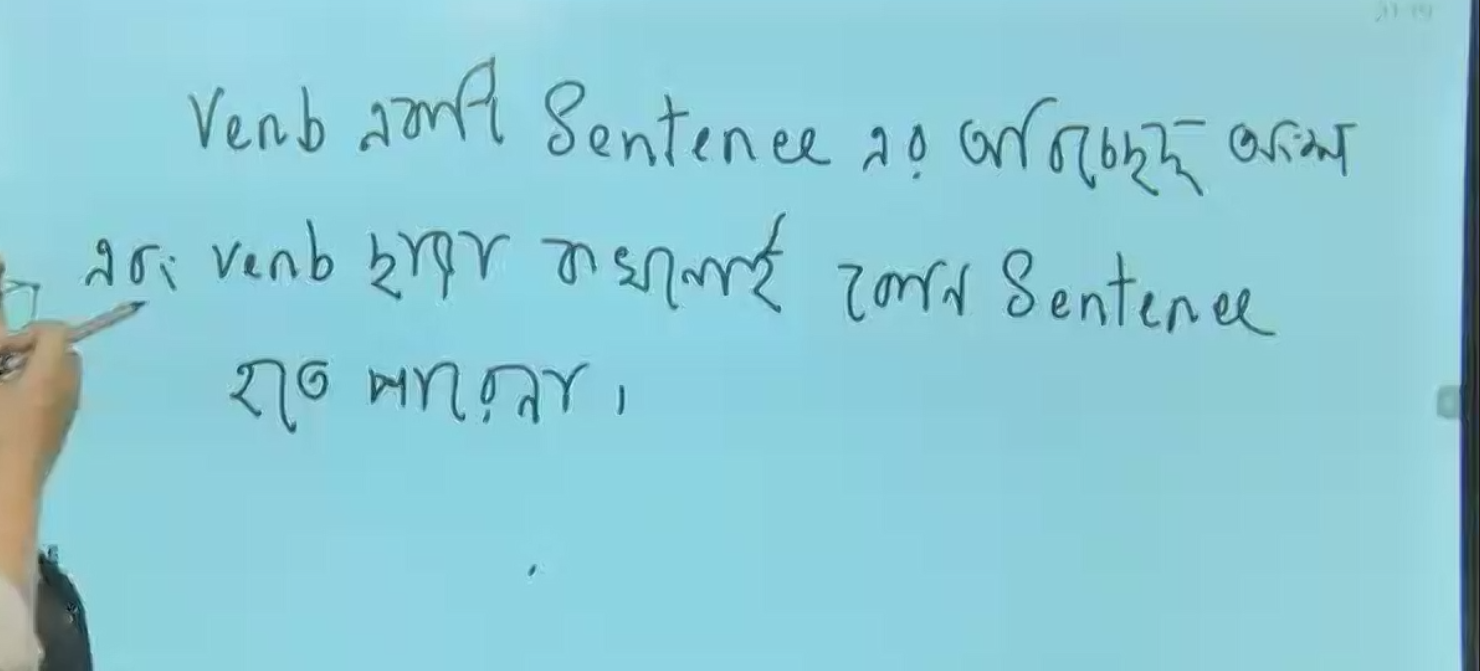 Verb একটি Sentence এর অবিচ্ছেদ্য অংশ
এবং verb ছাড়া কখনোই কোন Sentence
হতে পারেনা।